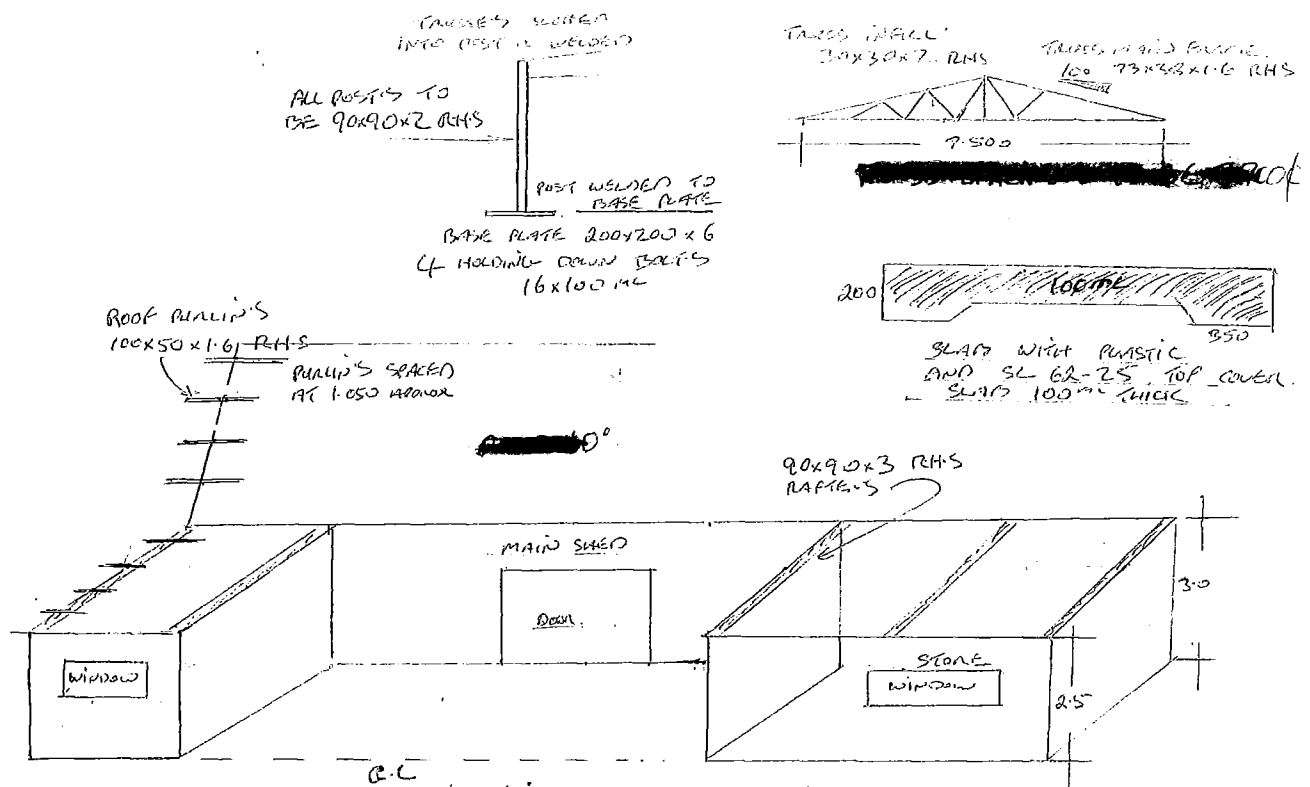 TRUSSES SLOTTED
INTO POST & WELDED
ALL POSTS TO
BE 90x90x2 RHS
POST WELDED TO
BASE PLATE
BASE PLATE 200x200x6
4 HOLDING DOWN BOLTS
16x100 ML
TRUSS INFILL
30x30x2 RHS
TRUSS MAIN
100 x38x1.6 RHS
7.500
200
100ML
350
SLAB WITH PLASTIC
AND SL 62-25 TOP COVER.
SLAB 100ML THICK
ROOF PURLIN'S
100x50x1.6 RHS
PURLIN'S SPACED
AT 1.050 APPROX
0°
90x90x3 RHS
RAFTERS
MAIN SHED
DOOR
WINDOW
STORE
WINDOW
3.0
2.5
G.L